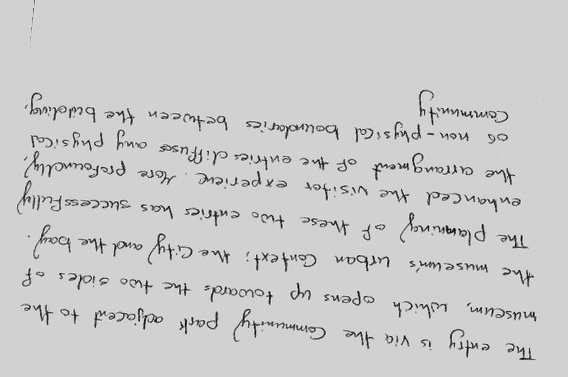 The entry is via the community park adjacent to the
museum, which opens up towards the two sides of
the museum's urban context; the city and the bay.
The planning of these two entries has successfully
enhanced the visitor experience. More profoundly,
the arrangment of the entries diffuses any physical
or non-physical boundaries between the building,
community